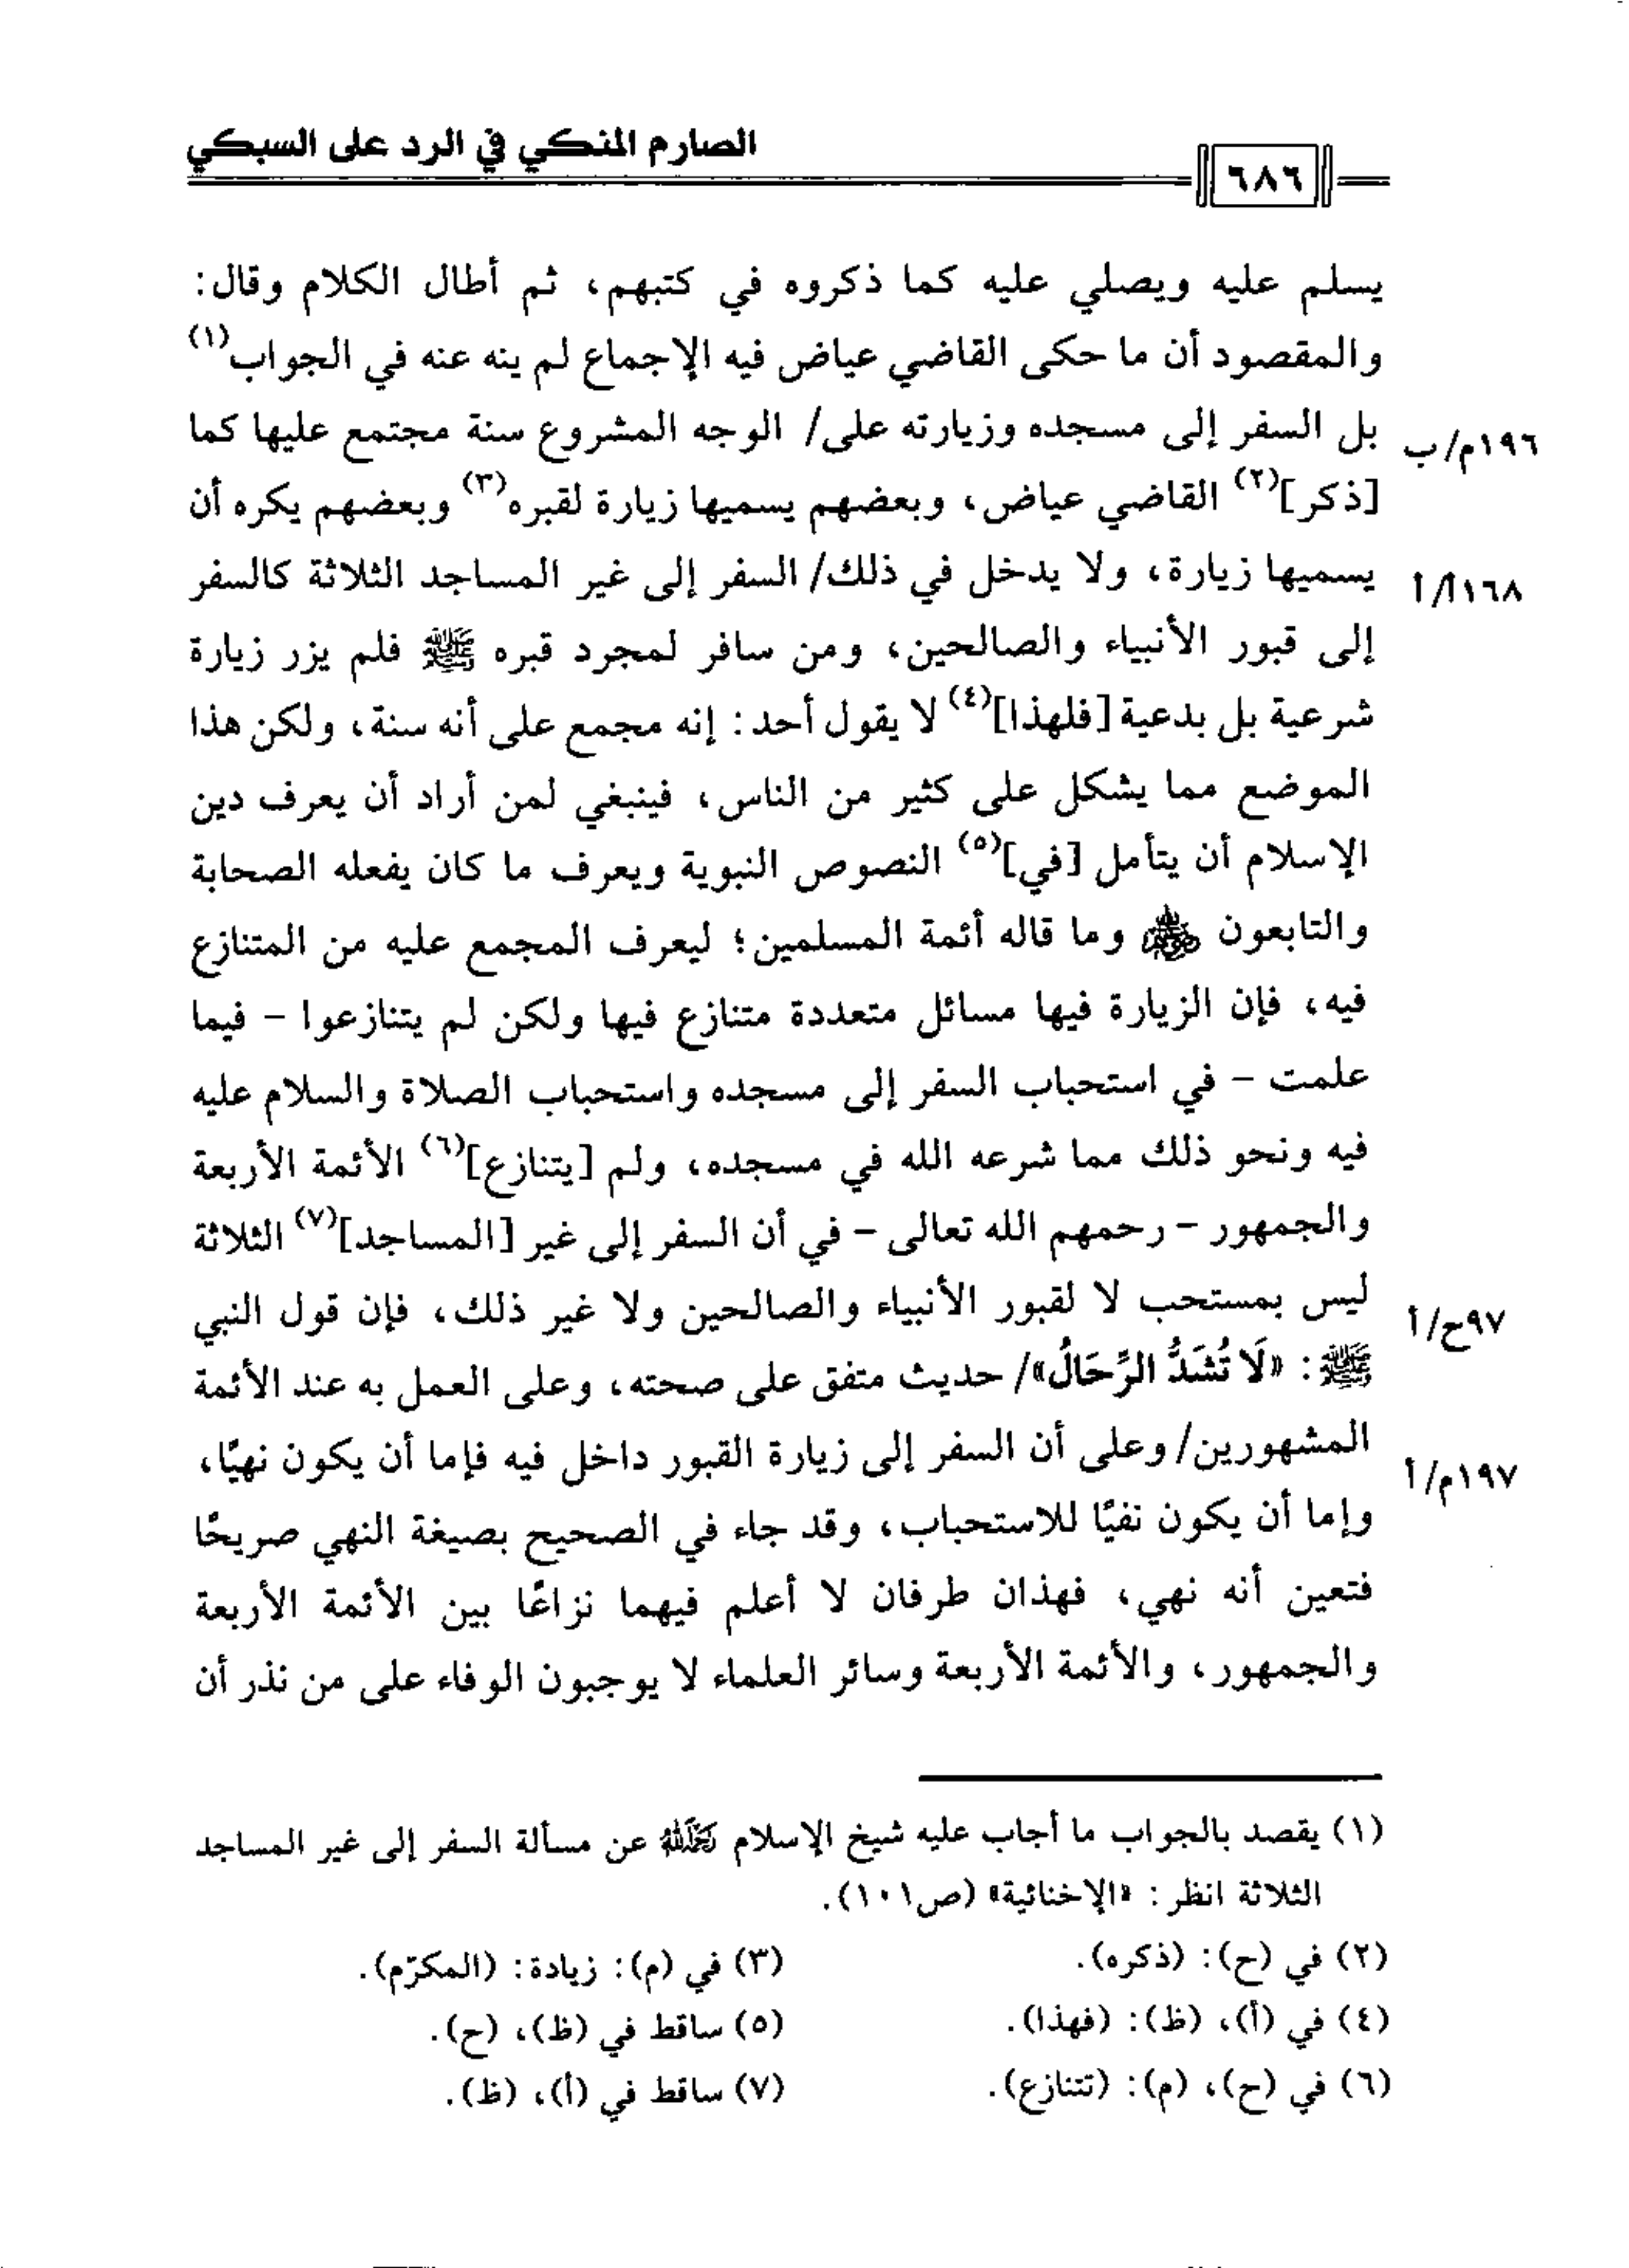 الصارم المنكي في الرد على السبكي
٦٨٦
يسلم عليه ويصلي عليه كما ذكروه في كتبهم، ثم أطال الكلام وقال:
والمقصود أن ما حكى القاضي عياض فيه الإجماع لم ينه عنه في الجواب(١)
بل السفر إلى مسجده وزيارته على/ الوجه المشروع سنة مجتمع عليها كما
١٩٦م/ب
[ذكر](٢) القاضي عياض، وبعضهم يسميها زيارة لقبره(٣) وبعضهم يكره أن
يسميها زيارة، ولا يدخل في ذلك/ السفر إلى غير المساجد الثلاثة كالسفر
١٦٨أ/أ
إلى قبور الأنبياء والصالحين، ومن سافر لمجرد قبره ﷺ فلم يزر زيارة
شرعية بل بدعية [فلهذا](٤) لا يقول أحد: إنه مجمع على أنه سنة، ولكن هذا
الموضع مما يشكل على كثير من الناس، فينبغي لمن أراد أن يعرف دين
الإسلام أن يتأمل [في](٥) النصوص النبوية ويعرف ما كان يفعله الصحابة
والتابعون وما قاله أئمة المسلمين؛ ليعرف المجمع عليه من المتنازع
فيه، فإن الزيارة فيها مسائل متعددة متنازع فيها ولكن لم يتنازعوا - فيما
علمت - في استحباب السفر إلى مسجده واستحباب الصلاة والسلام عليه
فيه ونحو ذلك مما شرعه الله في مسجده، ولم [يتنازع](٦) الأئمة الأربعة
والجمهور - رحمهم الله تعالى - في أن السفر إلى غير [المساجد](٧) الثلاثة
ليس بمستحب لا لقبور الأنبياء والصالحين ولا غير ذلك، فإن قول النبي
٩٧ح/أ
ﷺ: «لَا تُشَدُّ الرِّحَالُ»/ حديث متفق على صحته، وعلى العمل به عند الأئمة
المشهورين/ وعلى أن السفر إلى زيارة القبور داخل فيه فإما أن يكون نهيًا،
١٩٧م/أ
وإما أن يكون نفيًا للاستحباب، وقد جاء في الصحيح بصيغة النهي صريحًا
فتعين أنه نهي، فهذان طرفان لا أعلم فيهما نزاعًا بين الأئمة الأربعة
والجمهور، والأئمة الأربعة وسائر العلماء لا يوجبون الوفاء على من نذر أن
(١) يقصد بالجواب ما أجاب عليه شيخ الإسلام رحمه الله عن مسألة السفر إلى غير المساجد
الثلاثة انظر: «الإخنائية» (ص١٠١).
(٢) في (ح): (ذكره). (٣) في (م): زيادة: (المكرّم).
(٤) في (أ)، (ظ): (فهذا). (٥) ساقط في (ظ)، (ح).
(٦) في (ح)، (م): (تتنازع). (٧) ساقط في (أ)، (ظ).